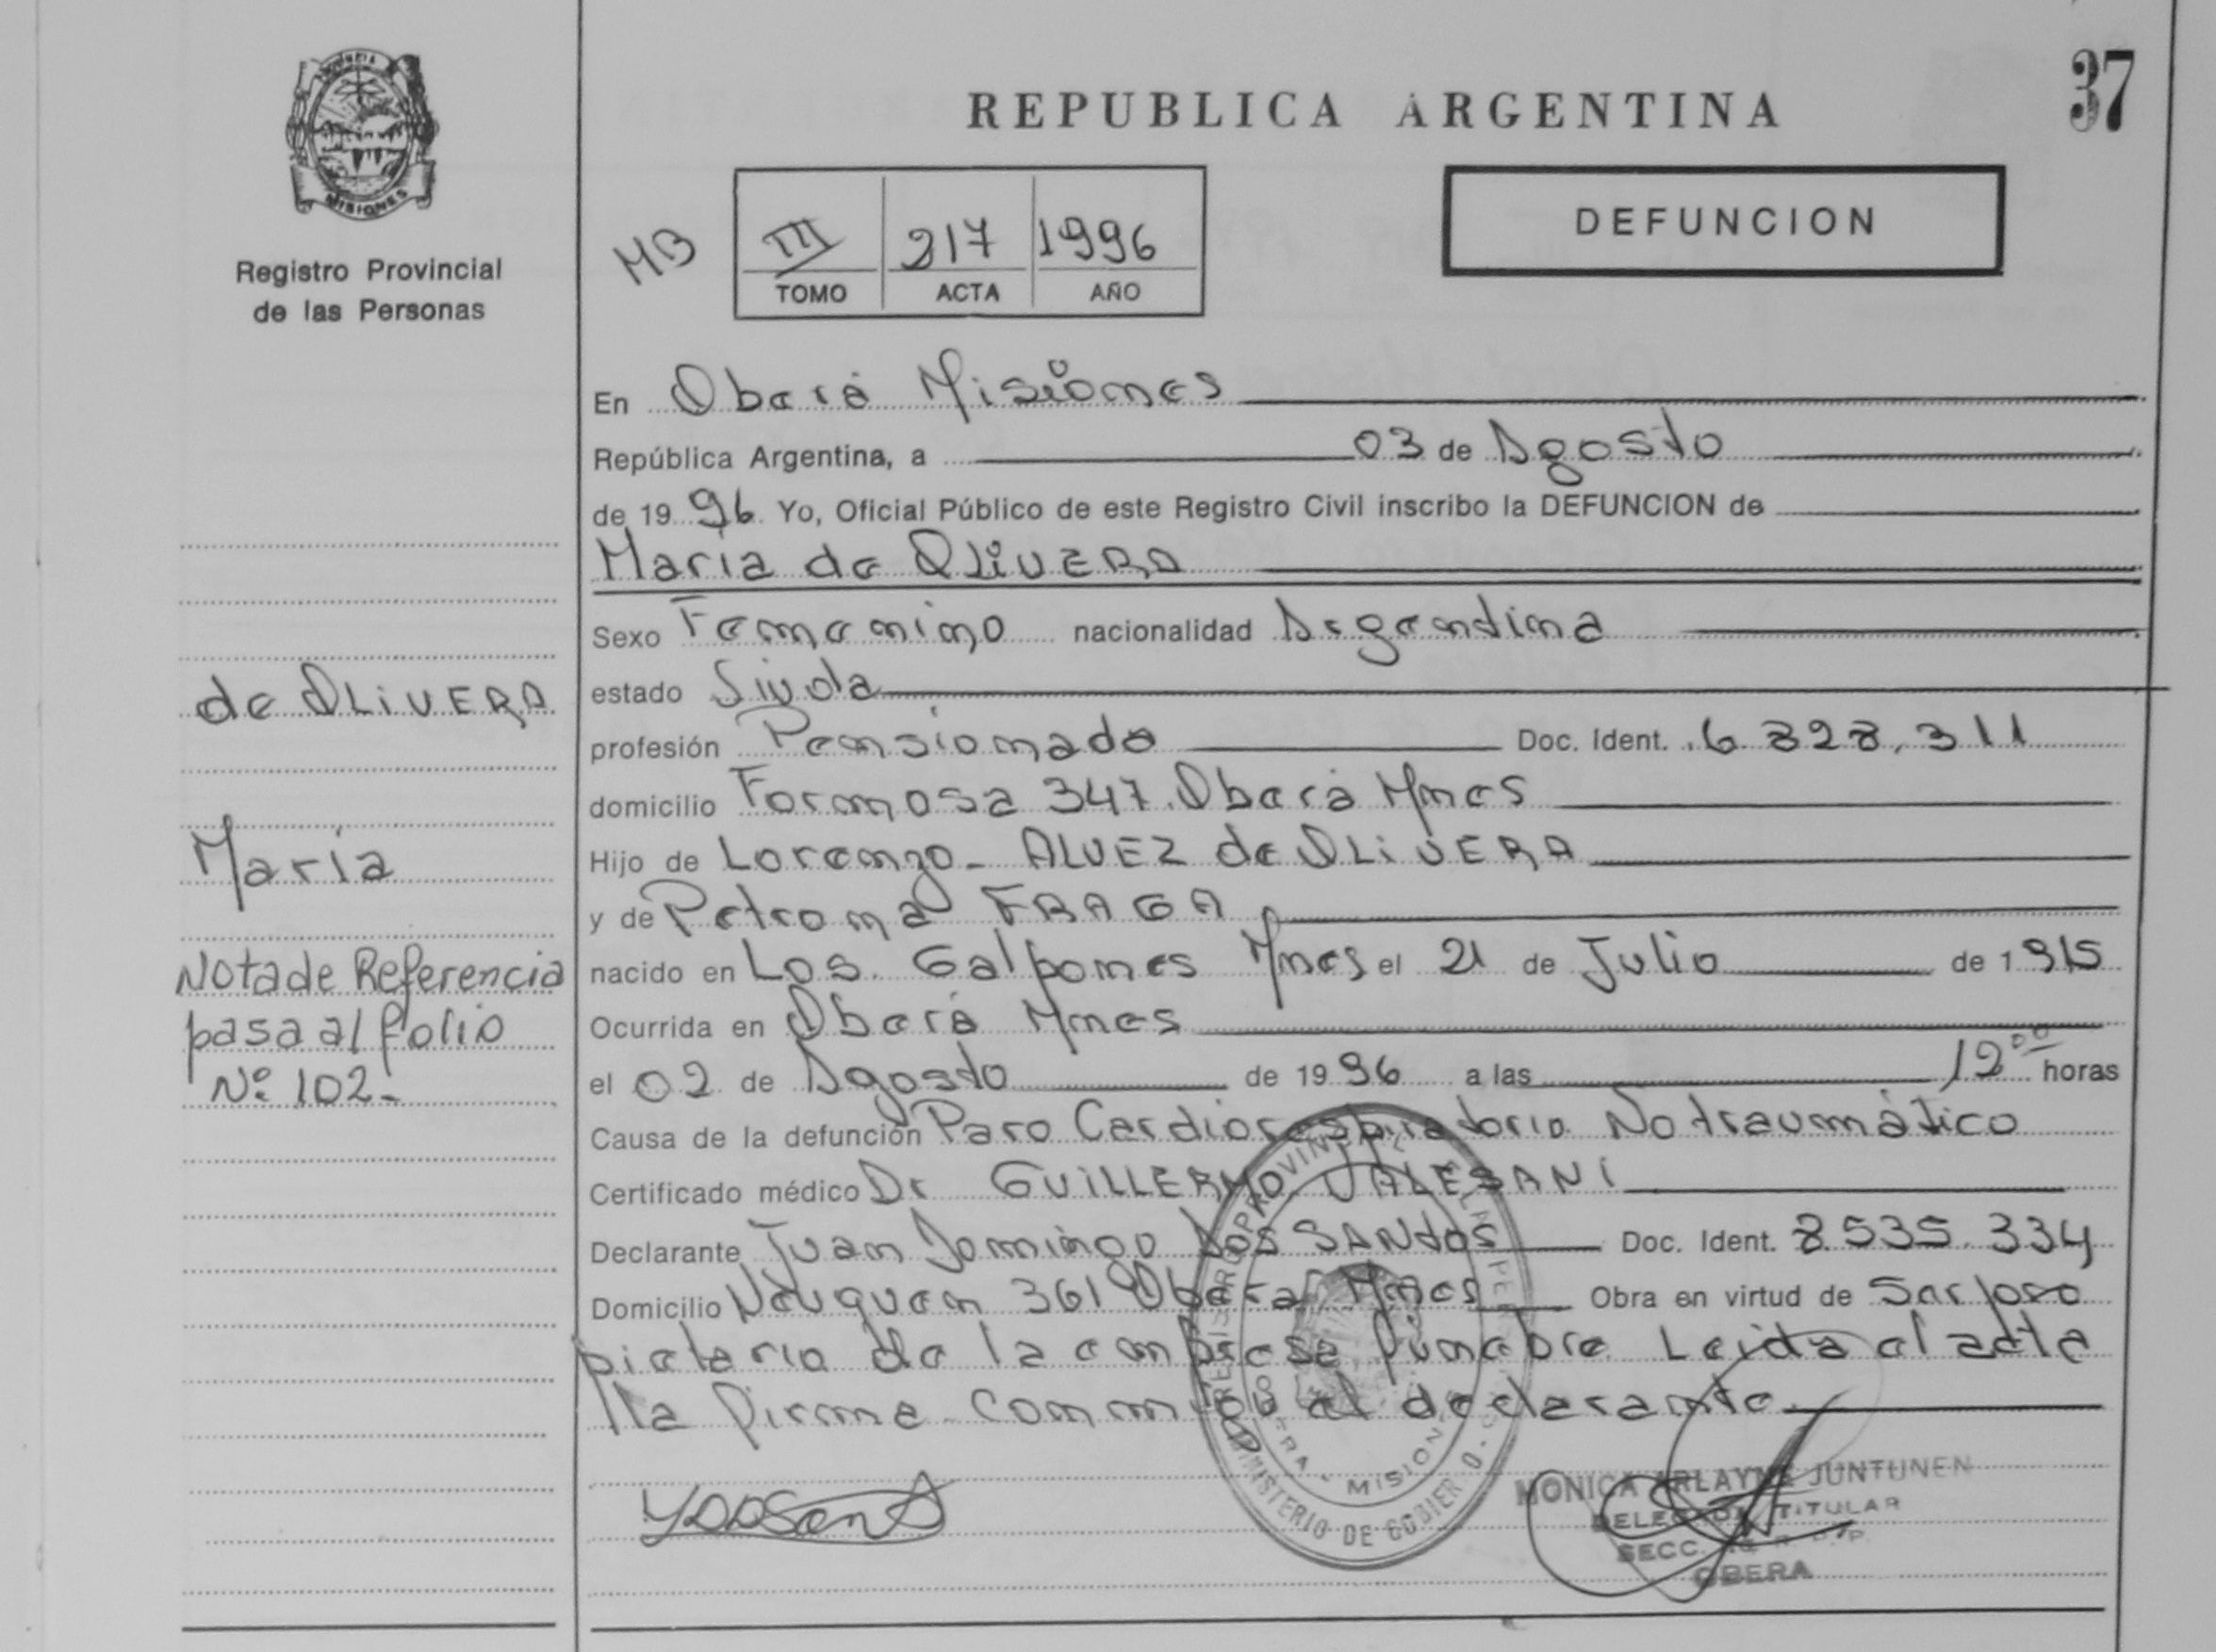 37
REPUBLICA ARGENTINA
PROVINCIA
MISIONES
Registro Provincial
de las Personas
DEFUNCION
HB
III 217 1996
TOMO ACTA AÑO
En Oberá Misiones
República Argentina, a 03 de Agosto
de 1996 Yo, Oficial Público de este Registro Civil inscribo la DEFUNCION de
Maria de OLiVERA
Sexo Femenino nacionalidad Argentina
de OLiVERA
estado Siuda
profesión Pensionada Doc. Ident. 6 828.311
domicilio Formosa 347. Oberá Mnes
María
Hijo de Lorenzo - ALVEZ de OLiVERA
y de Petrona FRAGA
Nota de Referencia
pasa al folio
Nº 102-
nacido en Los Galpones Mnes el 21 de Julio de 1915
Ocurrida en Oberá Mnes
el 02 de Agosto de 1996 a las 12 00 horas
Causa de la defunción Paro Cardiorespiratorio No traumático
Certificado médico Dr GUiLLERMO VALESANi
Declarante Juan Domingo Dos SANtOS Doc. Ident. 8.535.334
Domicilio Neuquen 361 Oberá Mnes Obra en virtud de Ser pro
pietario de la empresa funebre Leida el acta
la firma conmigo el declarante
MONICA ARLAYNE JUNTUNEN
TITULAR
SECC.
OBERA
MINISTERIO DE GOBIER
MISION